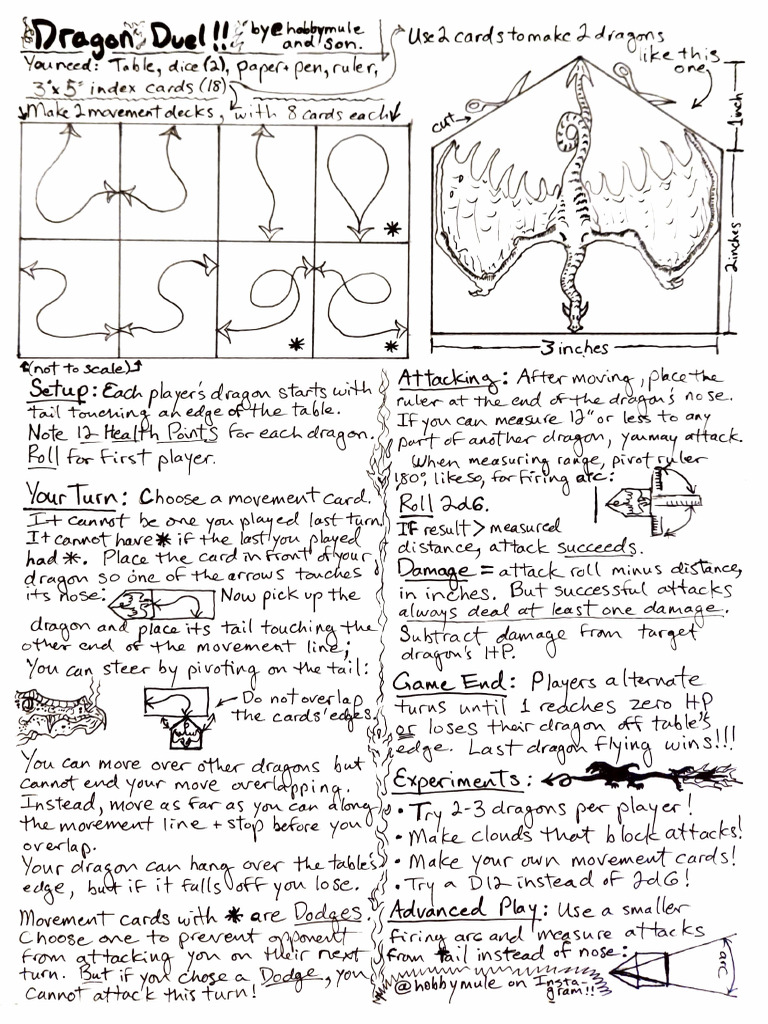 Dragon Duel!! by @hobbymule and son.
You need: Table, dice (2), paper + pen, ruler,
3" x 5" index cards (18)
Make 2 movement decks, with 8 cards each
Use 2 cards to make 2 dragons
like this one
cut
1 inch
2 inches
3 inches
*
*
*
(not to scale)
Setup: Each player's dragon starts with
tail touching an edge of the table.
Note 12 Health Points for each dragon.
Roll for first player.
Your Turn: Choose a movement card.
It cannot be one you played last turn.
It cannot have * if the last you played
had *. Place the card in front of your
dragon so one of the arrows touches
its nose: Now pick up the
dragon and place its tail touching the
other end of the movement line;
You can steer by pivoting on the tail:
Do not overlap
the cards' edges
You can move over other dragons but
cannot end your move overlapping.
Instead, move as far as you can along
the movement line + stop before you
overlap.
Your dragon can hang over the table's
edge, but if it falls off you lose.
Movement cards with * are Dodges.
Choose one to prevent opponent
from attacking you on their next
turn. But if you chose a Dodge, you
cannot attack this turn!
Attacking: After moving, place the
ruler at the end of the dragon's nose.
If you can measure 12" or less to any
part of another dragon, you may attack.
When measuring range, pivot ruler
180°, like so, for firing arc:
Roll 2d6.
If result > measured
distance, attack succeeds.
Damage = attack roll minus distance,
in inches. But successful attacks
always deal at least one damage.
Subtract damage from target
dragon's HP.
Game End: Players alternate
turns until 1 reaches zero HP
or loses their dragon off table's
edge. Last dragon flying wins!!!
Experiments:
• Try 2-3 dragons per player!
• Make clouds that block attacks!
• Make your own movement cards!
• Try a D12 instead of 2d6!
Advanced Play: Use a smaller
firing arc and measure attacks
from tail instead of nose:
arc
@hobbymule on Insta-
gram!!